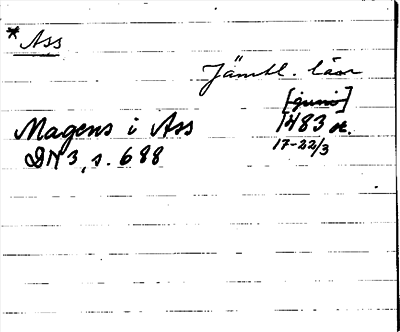 * Ass
Jämtl. län
[juni]
Magens i Ass 1483 or.
17-22/3
DN 3, s. 688